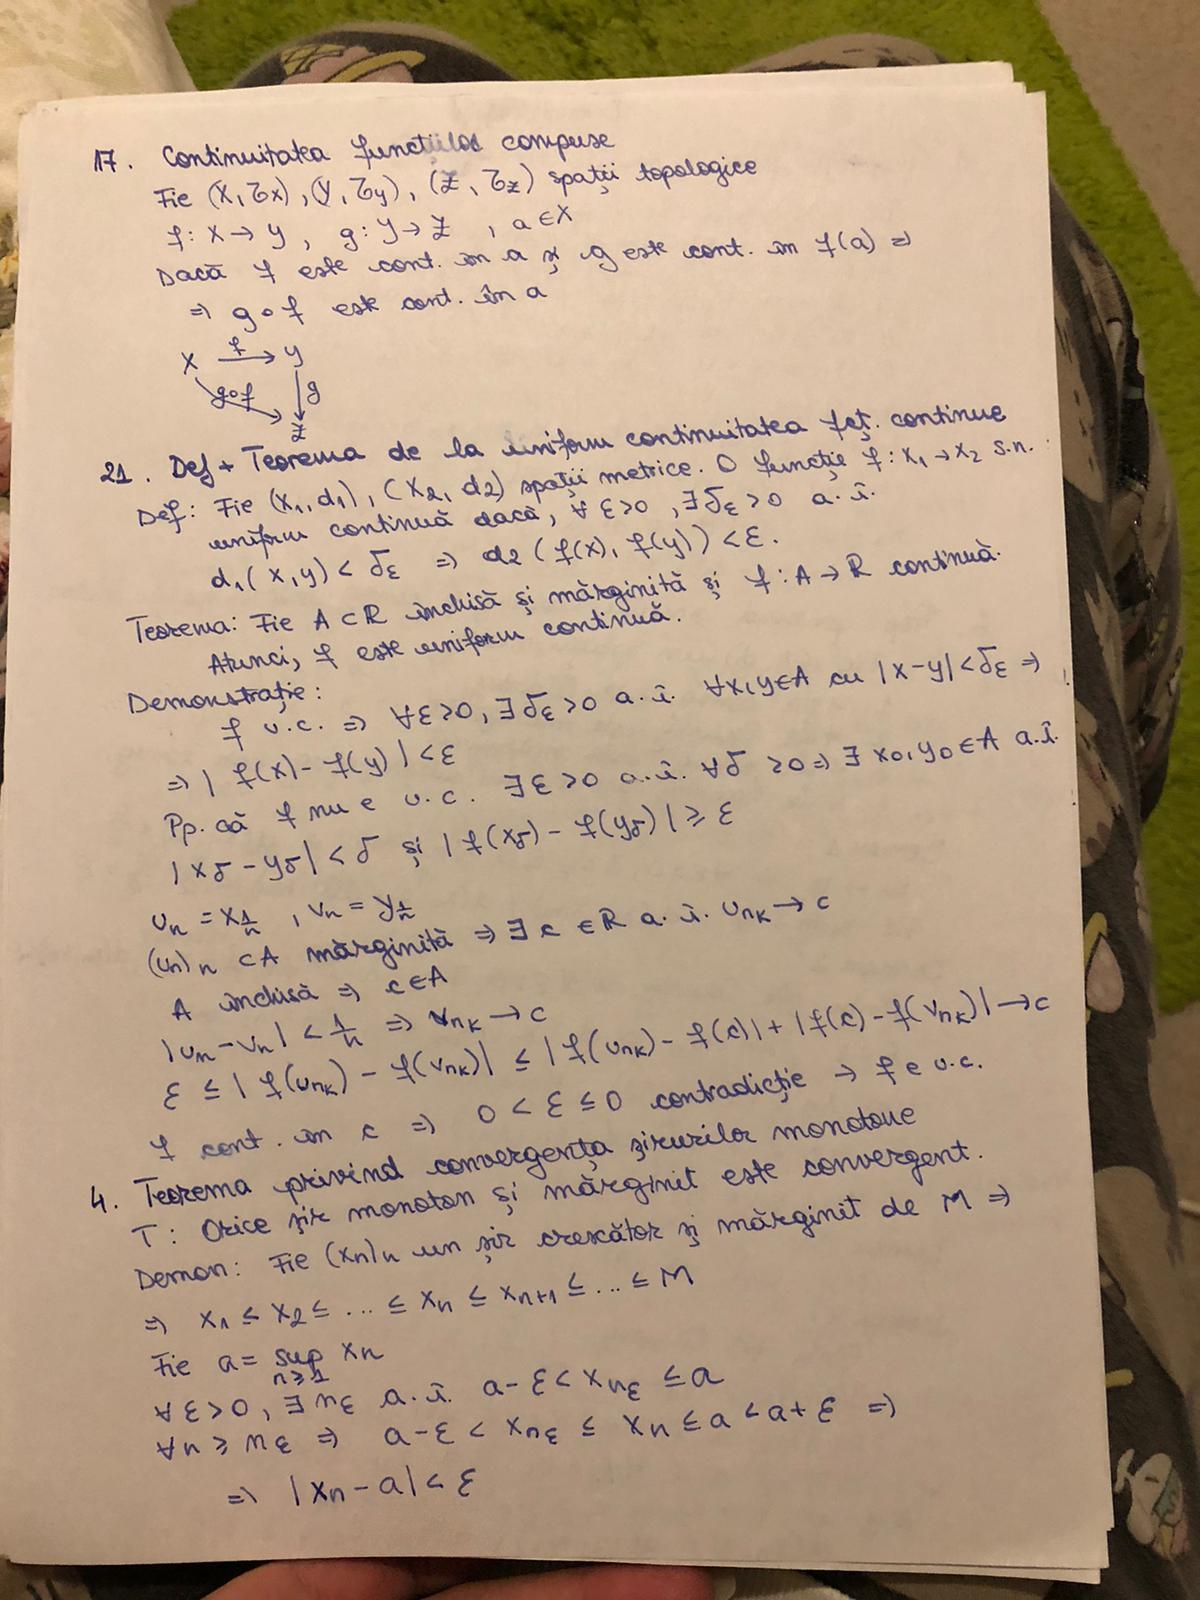 17. Continuitatea funcțiilor compuse
Fie (X, τx), (Y, τy), (Z, τz) spații topologice
f: X → Y, g: Y → Z, a ∈ X
Dacă f este cont. în a și g este cont. în f(a) ⇒
⇒ g∘f este cont. în a
X f→ Y
g∘f g
Z
21. Def + Teorema de la uniform continuitatea fcț. continue
Def: Fie (X1, d1), (X2, d2) spații metrice. O funcție f: X1 → X2 s.n.
uniform continuă dacă, ∀ ε>0, ∃ δε>0 a.î.
d1(x,y) < δε ⇒ d2(f(x), f(y)) < ε.
Teorema: Fie A ⊂ R închisă și mărginită și f: A → R continuă.
Atunci, f este uniform continuă.
Demonstrație:
f u.c. ⇒ ∀ε>0, ∃ δε>0 a.î. ∀x,y∈A cu |x-y|<δε ⇒
⇒ | f(x) - f(y) | < ε
Pp. că f nu e u.c. ∃ ε>0 a.î. ∀δ >0 ⇒ ∃ x0,y0 ∈ A a.î.
|xδ - yδ| < δ și |f(xδ) - f(yδ)| ≥ ε
un = x1/n , vn = y1/n
(un)n ⊂ A mărginită ⇒ ∃ c ∈ R a.î. unk → c
A închisă ⇒ c∈A
|un - vn| < 1/n ⇒ vnk → c
ε ≤ | f(unk) - f(vnk)| ≤ | f(unk) - f(c)| + |f(c) - f(vnk)| → c
f cont. în c ⇒ 0 < ε ≤ 0 contradicție → f e u.c.
4. Teorema privind convergența șirurilor monotone
T: Orice șir monoton și mărginit este convergent.
Demon: Fie (xn)n un șir crescător și mărginit de M ⇒
⇒ x1 ≤ x2 ≤ ... ≤ xn ≤ xn+1 ≤ ... ≤ M
Fie a = sup xn
n≥1
∀ ε>0, ∃ nε a.î. a-ε < xnε ≤ a
∀n ≥ nε ⇒ a-ε < xnε ≤ xn ≤ a < a+ε ⇒
⇒ |xn - a| < ε